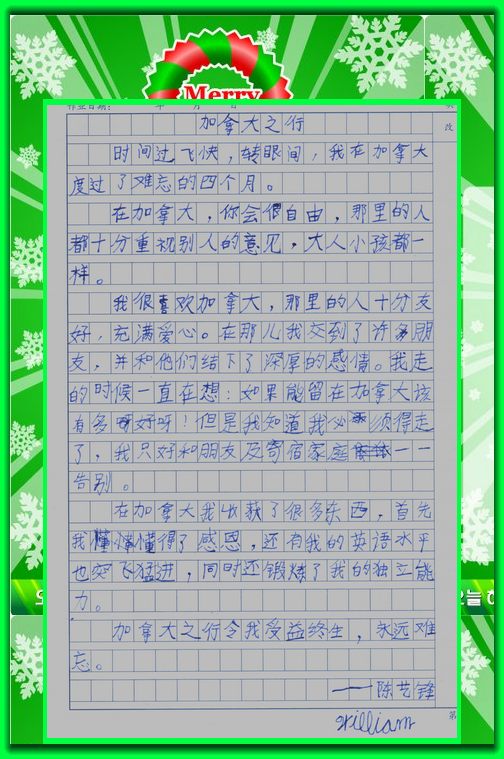 Merry
加拿大之行
时间过飞快，转眼间，我在加拿大
度过了难忘的四个月。
在加拿大，你会很自由，那里的人
都十分重视别人的意见，大人小孩都一
样。
我很喜欢加拿大，那里的人十分友
好，充满爱心。在那儿我交到了许多朋
友，并和他们结下了深厚的感情。我走
的时候一直在想：如果能留在加拿大该
有多好呀！但是我知道我必须得走
了，我只好和朋友及寄宿家庭一一
告别。
在加拿大我收获了很多东西，首先
我懂得了感恩，还有我的英语水平
也突飞猛进，同时还锻炼了我的独立能
力。
加拿大之行令我受益终生，永远难
忘。
——陈艺锋
William